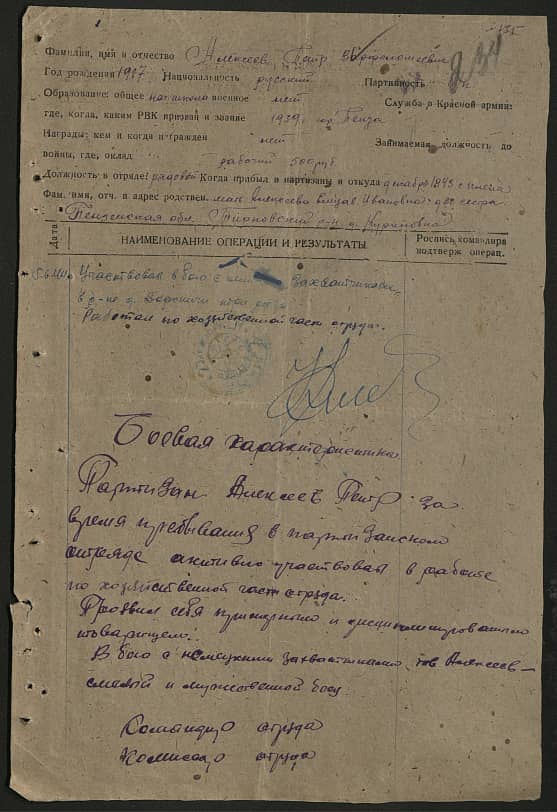 234
Фамилия, имя и отчество Алексеев Петр
Год рождения 1917 Национальность русский Партийность
Образование: общее военное нет Служба в Красной армии:
где, когда, каким РВК призван и звание 1939 гор Пенза
Награды: кем и когда награжден нет Занимаемая должность до
войны, где, оклад рабочий 500 руб.
Должность в отряде: рядовой Когда прибыл в партизаны и откуда декабрь 1943 с плена
Фам. имя, отч. и адрес родствен. Алексеева Ивановна
Пензенская обл.
Дата НАИМЕНОВАНИЕ ОПЕРАЦИИ И РЕЗУЛЬТАТЫ Роспись командира подтверж операц.
Участвовал в бою с захватчиками,
в р-не д.
Работал по хозяйственной части отряда.
Боевая характеристика
Партизан Алексеев Петр за
время пребывания в партизанском
отряде активно участвовал в работе
по хозяйственной части отряда.
Проявил себя примерно и дисциплинированно
товарищем.
В бою с немецкими захватчиками тов Алексеев –
смелый и мужественной боец
Командир отряда
Комиссар отряда